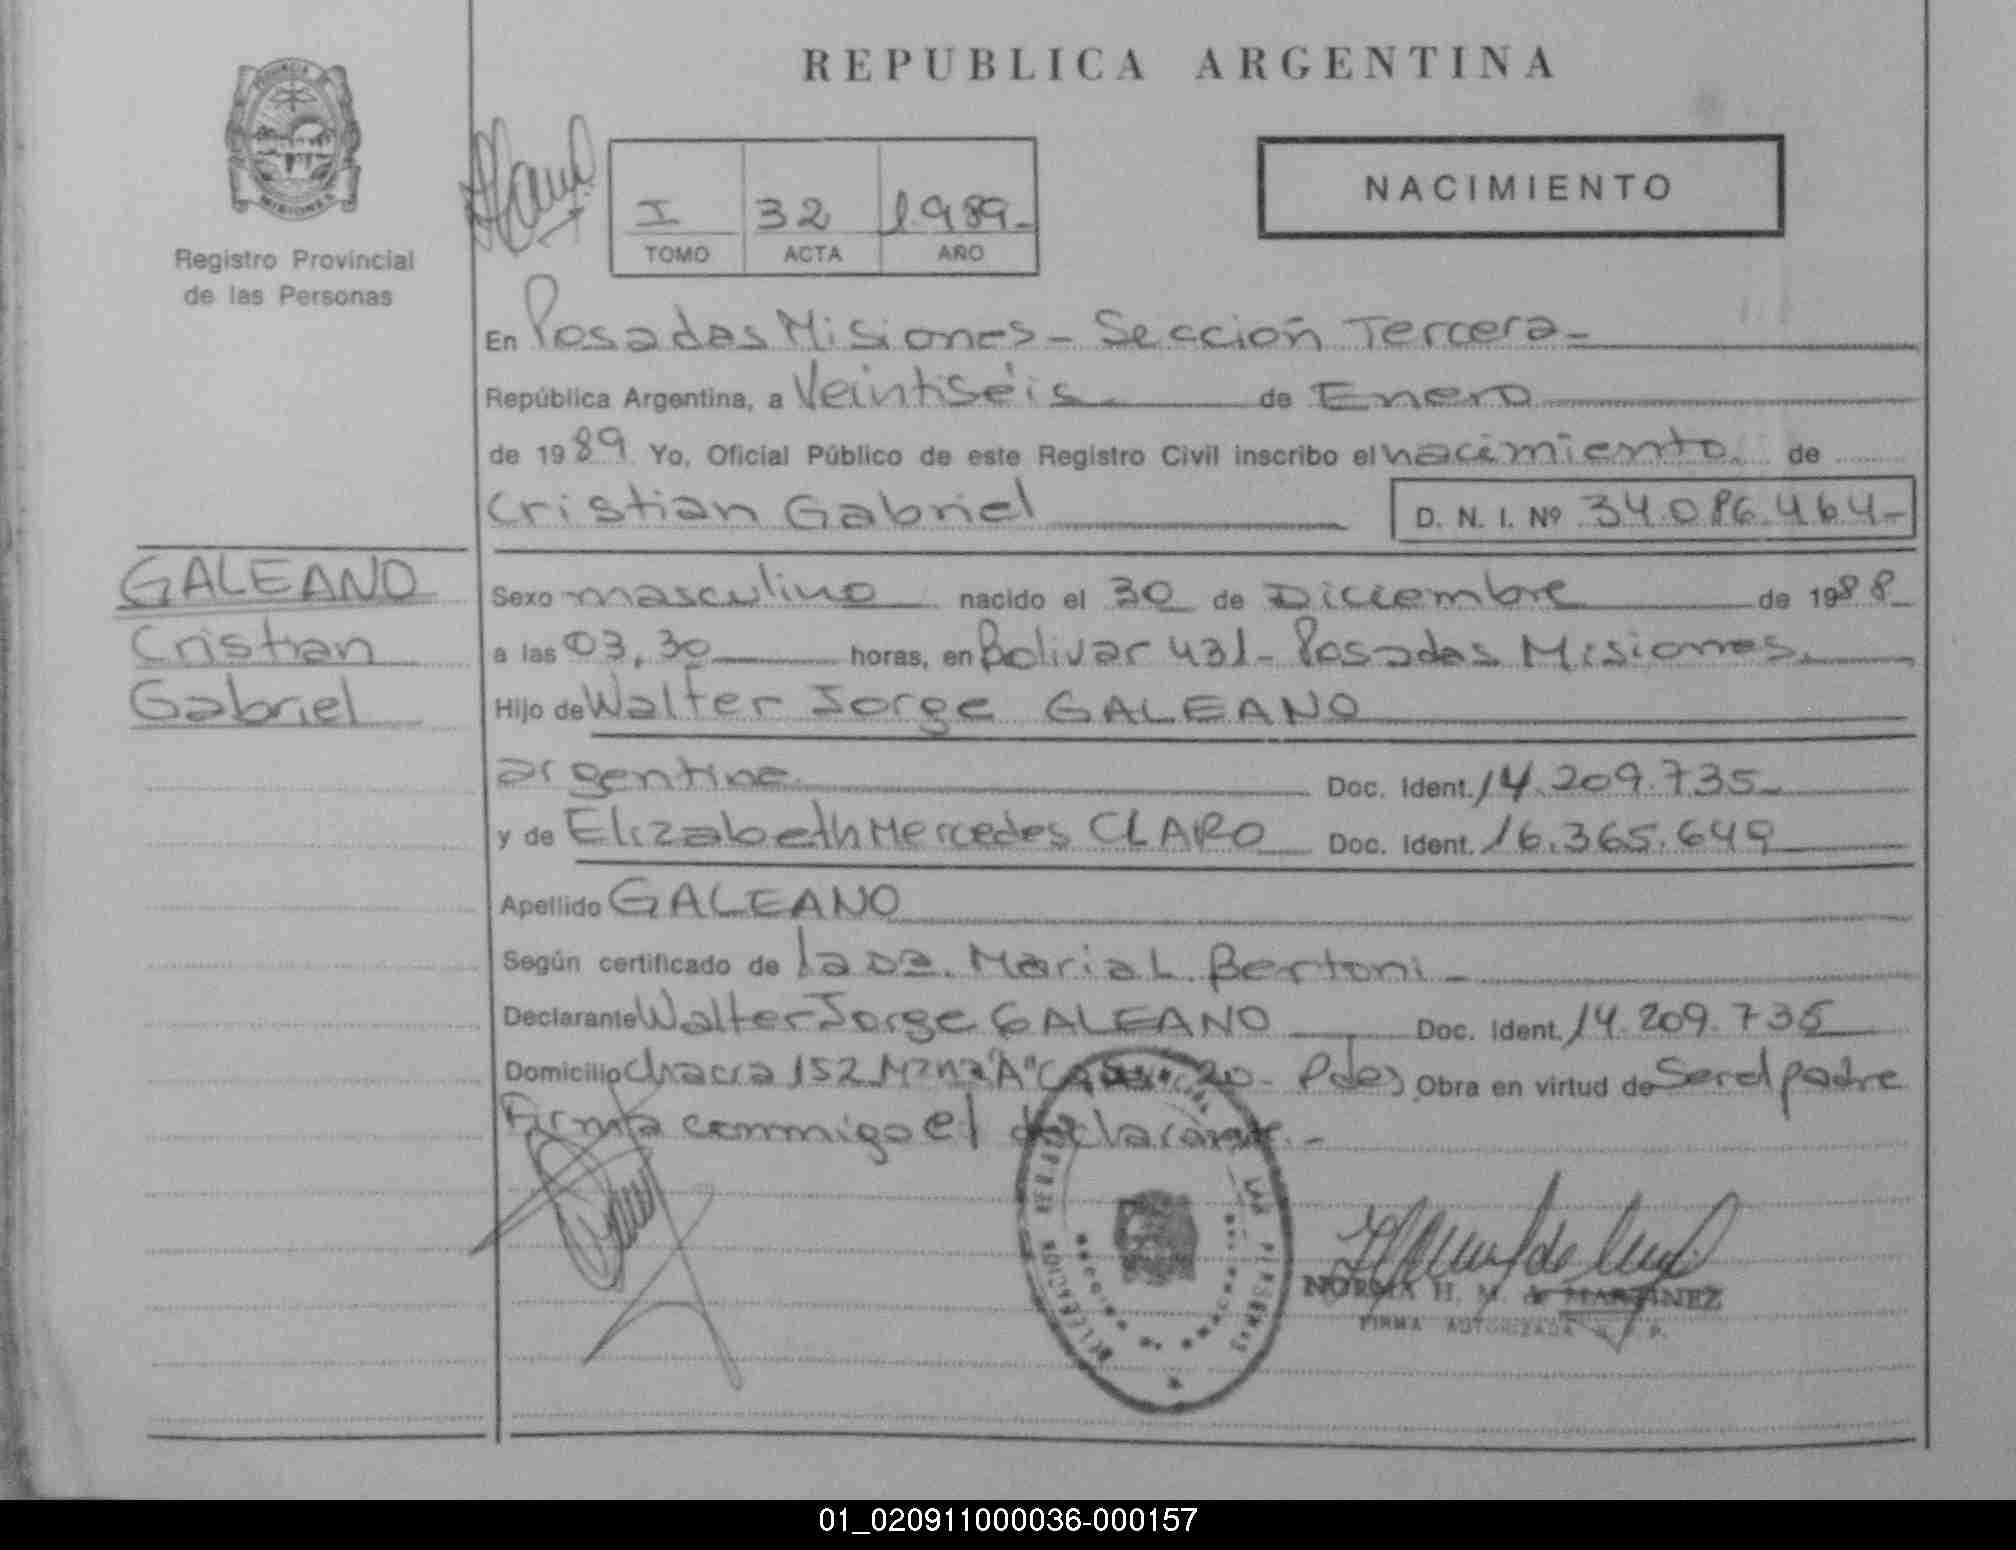 REPUBLICA ARGENTINA
PROVINCIA
MISIONES
Registro Provincial
de las Personas
I 32 1989-
TOMO ACTA AÑO
NACIMIENTO
En Posadas Misiones - Sección Tercera-
República Argentina, a Veintiséis de Enero
de 1989 Yo, Oficial Público de este Registro Civil inscribo el nacimiento. de
Cristian Gabriel D. N. I. Nº 34.086.464-
GALEANO
Cristian
Gabriel
Sexo masculino nacido el 30 de Diciembre de 1988
a las 03,30 horas, en Bolivar 431- Posadas Misiones.
Hijo de Walter Jorge GALEANO
argentina Doc. Ident. 14.209.735
y de Elizabeth Mercedes CLARO Doc. Ident. 16.365.649
Apellido GALEANO
Según certificado de la Maria L. Bertoni -
Declarante Walter Jorge GALEANO Doc. Ident. 14.209.735
Domicilio Chacra 152 Mzna "A" 20- Pdas Obra en virtud de Ser el padre
Firma conmigo el declarante.-
DELEGACION
LAS PERSONAS
NORMA H. M. de MARTINEZ
FIRMA AUTORIZADA R. P. P.
01_020911000036-000157